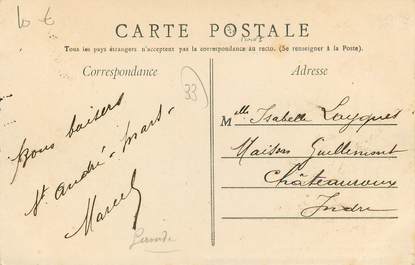 10 €
CARTE POSTALE
Tous les pays étrangers n'acceptent pas la correspondance au recto. (Se renseigner à la Poste).
Correspondance
33
Bons baisers
St André - mars -
Marcel
Gironde
Adresse
Melle Isabelle
Maison Guillemont
Châteauroux
Indre